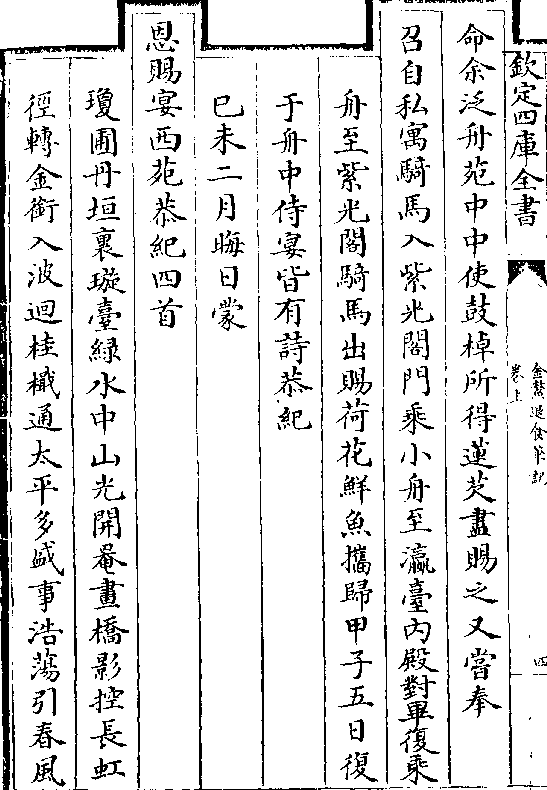 欽定四庫全書
金鰲退食筆記
卷上
四
命余泛舟苑中中使鼓棹所得蓮芡盡賜之又嘗奉
召自私寓騎馬入紫光閣門乘小舟至瀛臺內殿對畢復乘
舟至紫光閣騎馬出賜荷花鮮魚攜歸甲子五日復
于舟中侍宴皆有詩恭紀
已未二月晦日蒙
恩賜宴西苑恭紀四首
瓊圃丹垣裏璇臺緑水中山光開罨畫橋影控長虹
徑轉金銜入波迴桂檝通太平多盛事浩蕩引春風